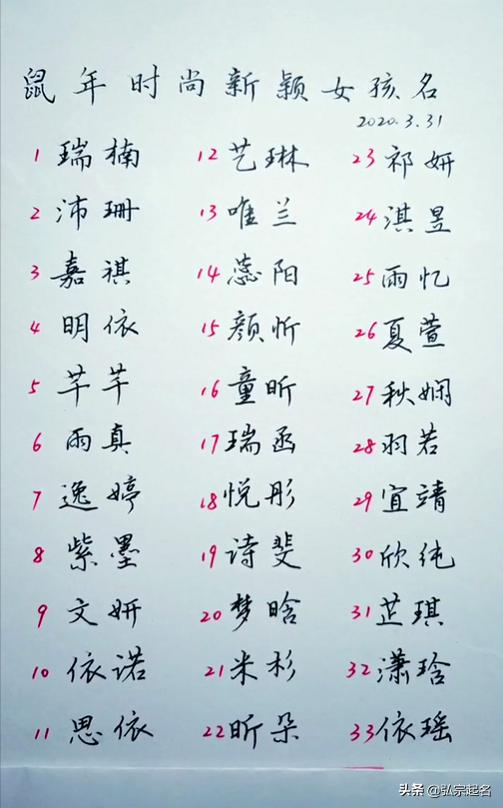 鼠年时尚新颖女孩名
2020.3.31
1 瑞楠 12 艺琳 23 祁妍
2 沛珊 13 唯兰 24 淇昱
3 嘉祺 14 蕊阳 25 雨忆
4 明依 15 颜忻 26 夏萱
5 芊芊 16 童昕 27 秋娴
6 雨真 17 瑞函 28 羽若
7 逸婷 18 悦彤 29 宜靖
8 紫墨 19 诗斐 30 欣纯
9 文妍 20 梦晗 31 芷琪
10 依诺 21 米杉 32 潇琀
11 思依 22 昕朵 33 依瑶
头条 @弘宗起名